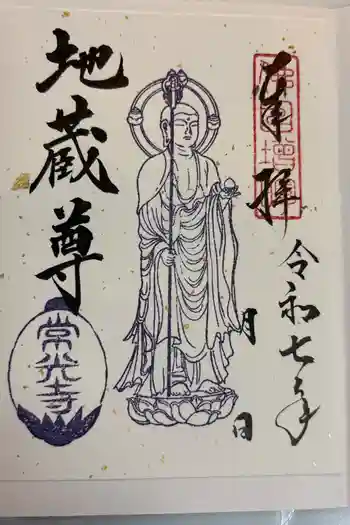 奉拝
令和七年
月
日
地蔵尊
常光寺